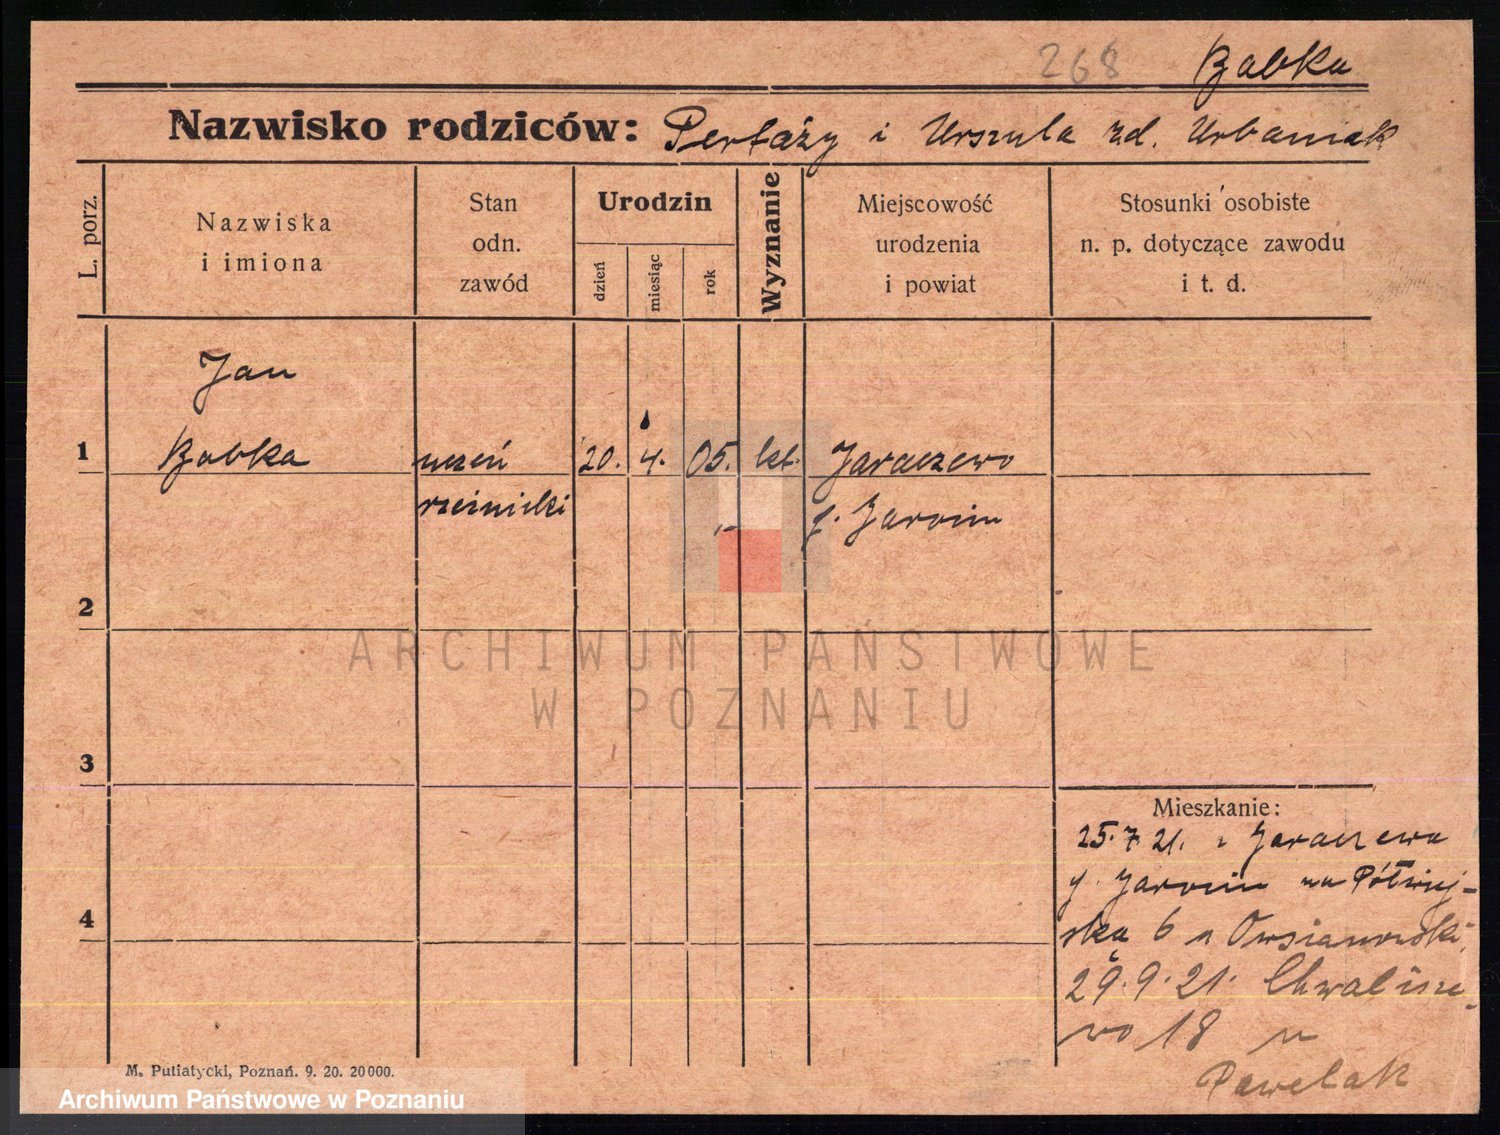 268 Babka
Nazwisko rodziców: Pertazy i Urszula zd. Urbaniak
L. porz.
Nazwiska
i imiona
Stan
odn.
zawód
Urodzin
dzień
miesiąc
rok
Wyznanie
Miejscowość
urodzenia
i powiat
Stosunki osobiste
n. p. dotyczące zawodu
i t. d.
Jan
1 Babka uczeń 20. 4. 05. kt. Jaraczewo
rzeźnicki p. Jarocin
2
ARCHIWUM PAŃSTWOWE
W POZNANIU
3
Mieszkanie:
25.7.21. z Jaraczewa
p. Jarocin na Półwiej-
4
ską 6 u Owsianowski
29.9.21. Chwalisze-
wo 18 u
Pawelak
M. Putiatycki, Poznań. 9. 20. 20000.
Archiwum Państwowe w Poznaniu